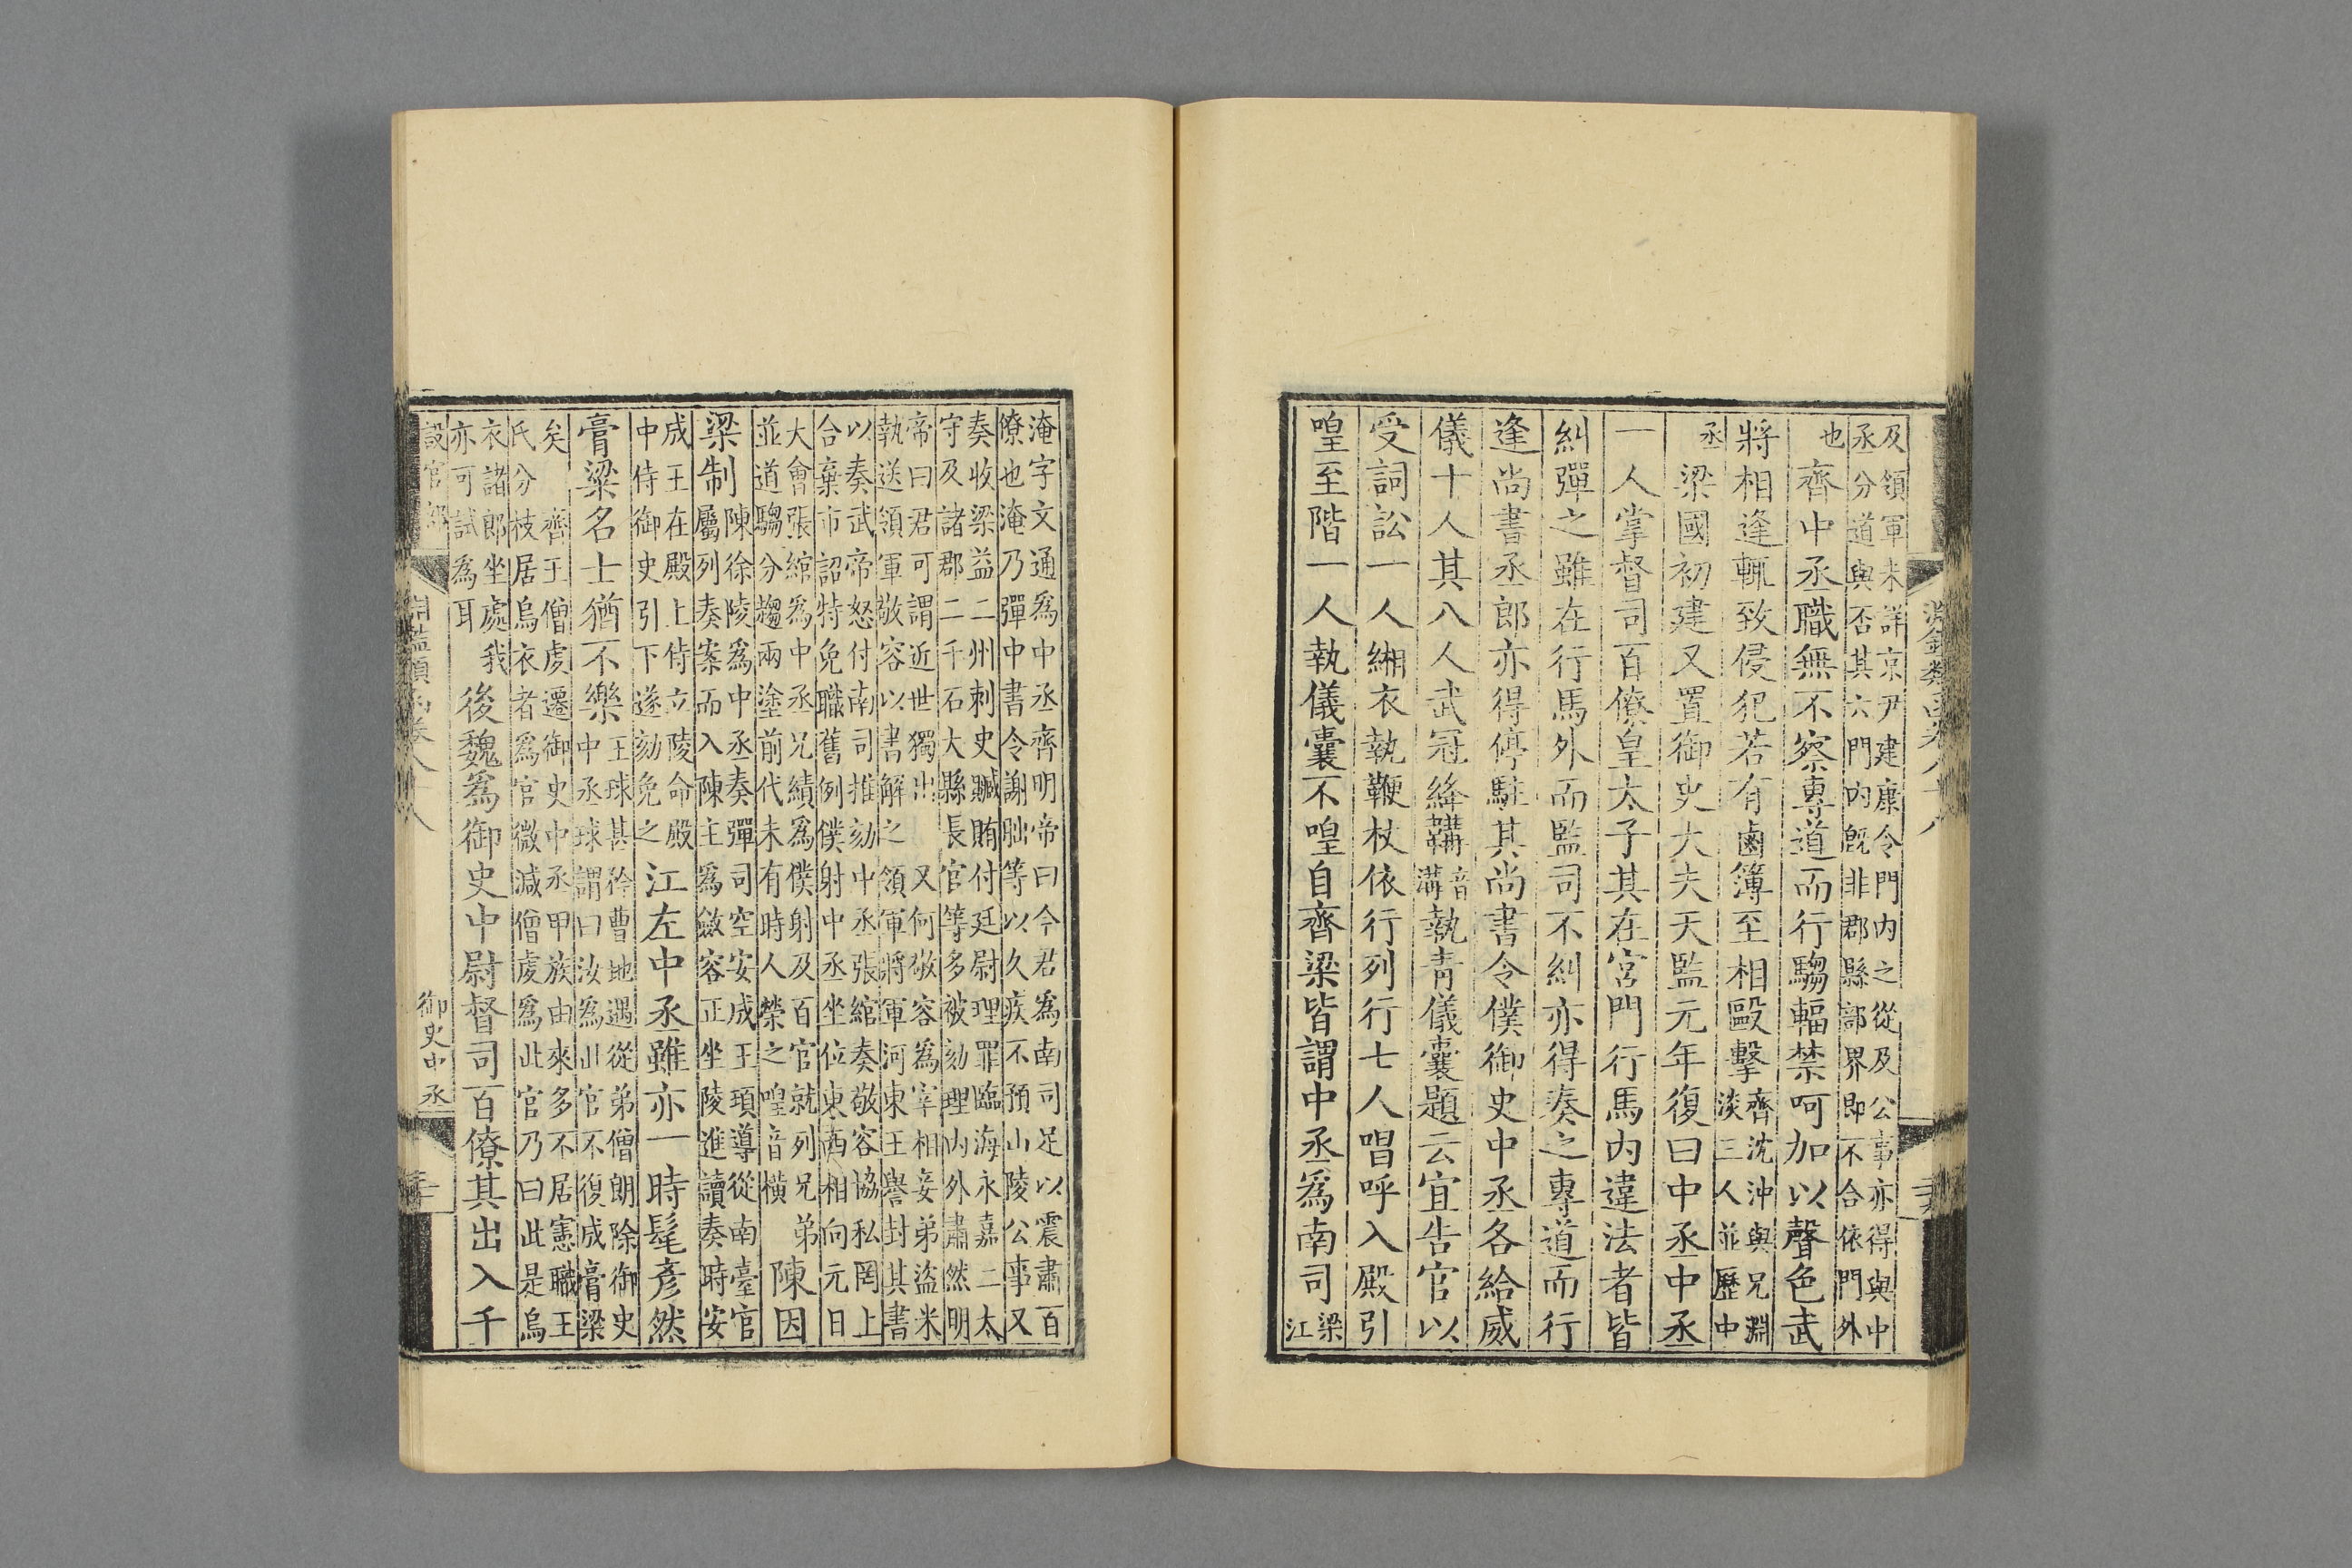 淵鑑類函卷八十八
及領軍未詳京尹建康令門内之從及公事亦得與中
丞分道與否其六門内旣非郡縣部界即不合依門外
也 齊中丞職無不察專道而行騶輻禁呵加以聲色武
將相逢輒致侵犯若有鹵簿至相毆擊 齊沈沖與兄淵
淡三人並歷中
丞 梁國初建又置御史大夫天監元年復曰中丞中丞
一人掌督司百僚皇太子其在宮門行馬内違法者皆
糾彈之雖在行馬外而監司不糾亦得奏之專道而行
逢尚書丞郎亦得停駐其尚書令僕御史中丞各給威
儀十人其八人武冠絳韝音溝執青儀囊題云宜告官以
受詞訟一人緗衣執鞭杖依行列行七人唱呼入殿引
喤至階一人執儀囊不喤自齊梁皆謂中丞爲南司 梁
江
淹字文通爲中丞齊明帝曰今君爲南司足以震肅百
僚也淹乃彈中書令謝朏等以久疾不預山陵公事又
奏收梁益二州刺史贓賄付廷尉理罪臨海永嘉二太
守及諸郡二千石大縣長官等多被劾理内外肅然明
帝曰君可謂近世獨出 又何敬容爲宰相妾弟盜米
執送領軍敬容以書解之 領軍將軍河東王譽封其書
以奏武帝怒付南司推劾中丞張綰奏敬容協私罔上
合棄市詔特免職舊例僕射中丞坐位東西相向元日
大會張綰爲中丞兄績爲僕射及百官就列兄弟
並道騶分趨兩塗前代未有時人榮之喤音橫 陳因
梁制 陳徐陵爲中丞奏彈司空安成王頊導從南臺官
屬列奏案而入陳主爲斂容正坐陵進讀奏時安
成王在殿上侍立陵命殿
中侍御史引下遂劾免之 江左中丞雖亦一時髦彥然
膏粱名士猶不樂 王球甚矜曹地遇從弟僧朗除御史
中丞球謂曰汝爲此官不復成膏梁
矣 齊王僧虔遷御史中丞甲族由來多不居憲職王
氏分枝居烏衣者爲官微減僧虔爲此官乃曰此是烏
衣諸郎坐處我
亦可試爲耳 後魏爲御史中尉督司百僚其出入千
設官部
御史中丞